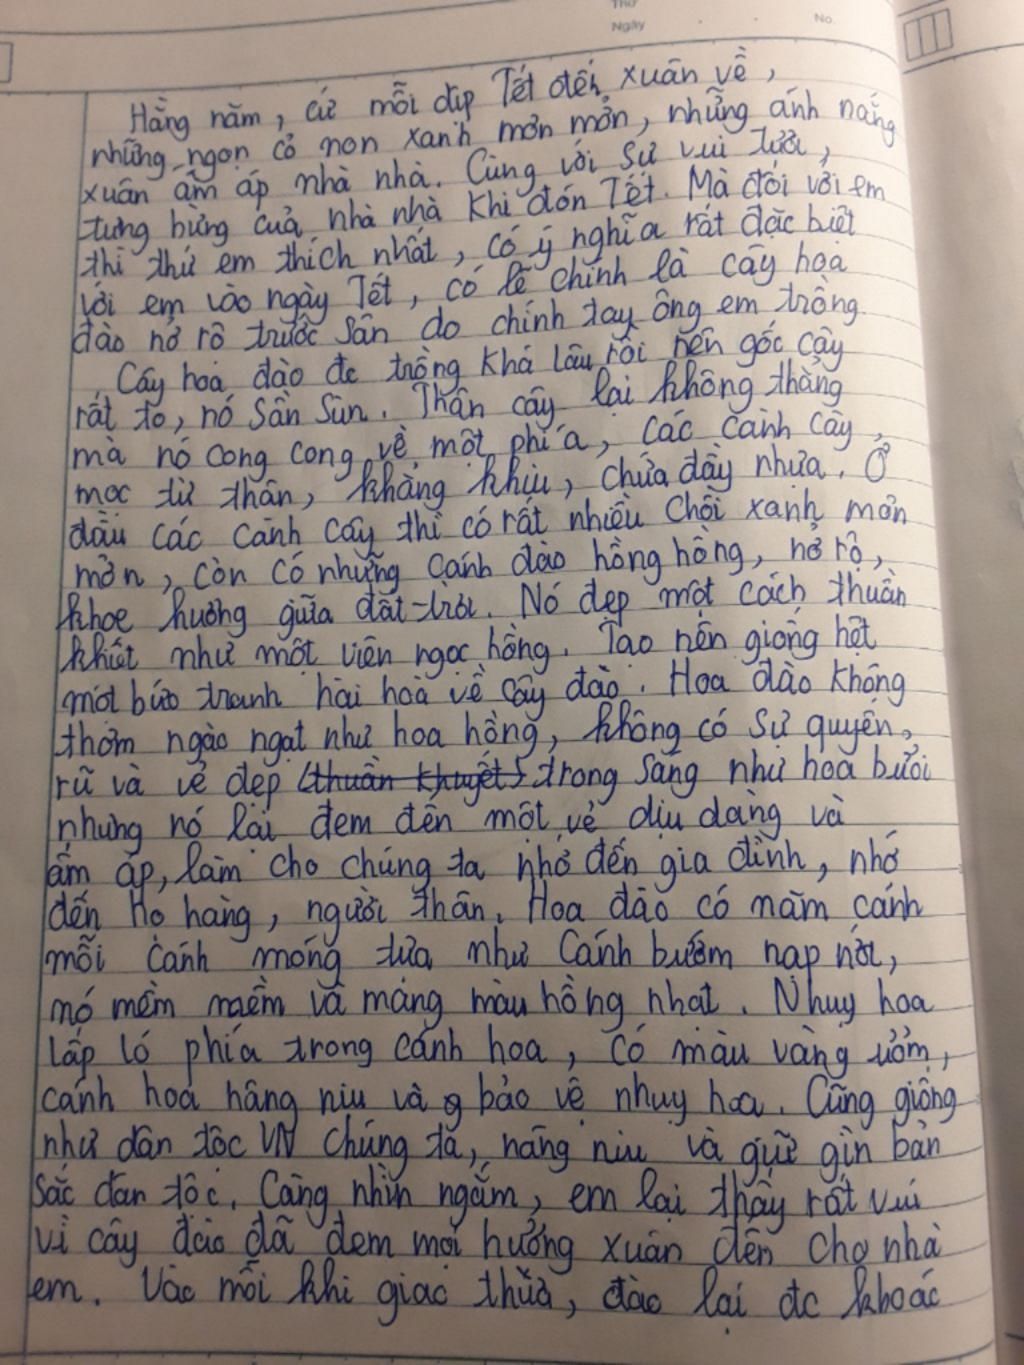 Thứ
Ngày . . No.
Hằng năm, cứ mỗi dịp Tết đến xuân về,
những ngọn cỏ non xanh mơn mởn, những ánh nắng
xuân ấm áp nhà nhà. Cùng với sự vui tươi,
tưng bừng của nhà nhà khi đón Tết. Mà đối với em
thì thứ em thích nhất, có ý nghĩa rất đặc biệt
với em vào ngày Tết, có lẽ chính là cây hoa
đào nở rộ trước sân do chính tay ông em trồng.
Cây hoa đào đc trồng khá lâu rồi nên gốc cây
rất to, nó sần sùn. Thân cây lại không thẳng
mà nó cong cong về một phía, các cành cây
mọc từ thân, khẳng khiu, chứa đầy nhựa. Ở
đầu các cành cây thì có rất nhiều chồi xanh mơn
mởn, còn có những cánh đào hồng hồng, nở rộ,
khoe hương giữa đất trời. Nó đẹp một cách thuần
khiết như một viên ngọc hồng. Tạo nên giống hệt
một bức tranh hài hoà về cây đào. Hoa đào không
thơm ngào ngạt như hoa hồng, không có sự quyến
rũ và vẻ đẹp (thuần khuyết) trong sáng như hoa bưởi
nhưng nó lại đem đến một vẻ dịu dàng và
ấm áp, làm cho chúng ta nhớ đến gia đình, nhớ
đến họ hàng, người thân. Hoa đào có năm cánh
mỗi cánh mỏng tựa như cánh bướm nạp nơi,
nó mềm mềm và máng màu hồng nhạt. Nhuỵ hoa
lấp ló phía trong cánh hoa, có màu vàng ươm,
cánh hoa nâng niu và bảo vệ nhuỵ hoa. Cũng giống
như dân tộc VN chúng ta, nâng niu và giữ gìn bản
sắc dân tộc. Càng nhìn ngắm, em lại thấy rất vui
vì cây đào đã đem mọi hướng xuân đến cho nhà
em. Vào mỗi khi giao thừa, đào lại đc khoác